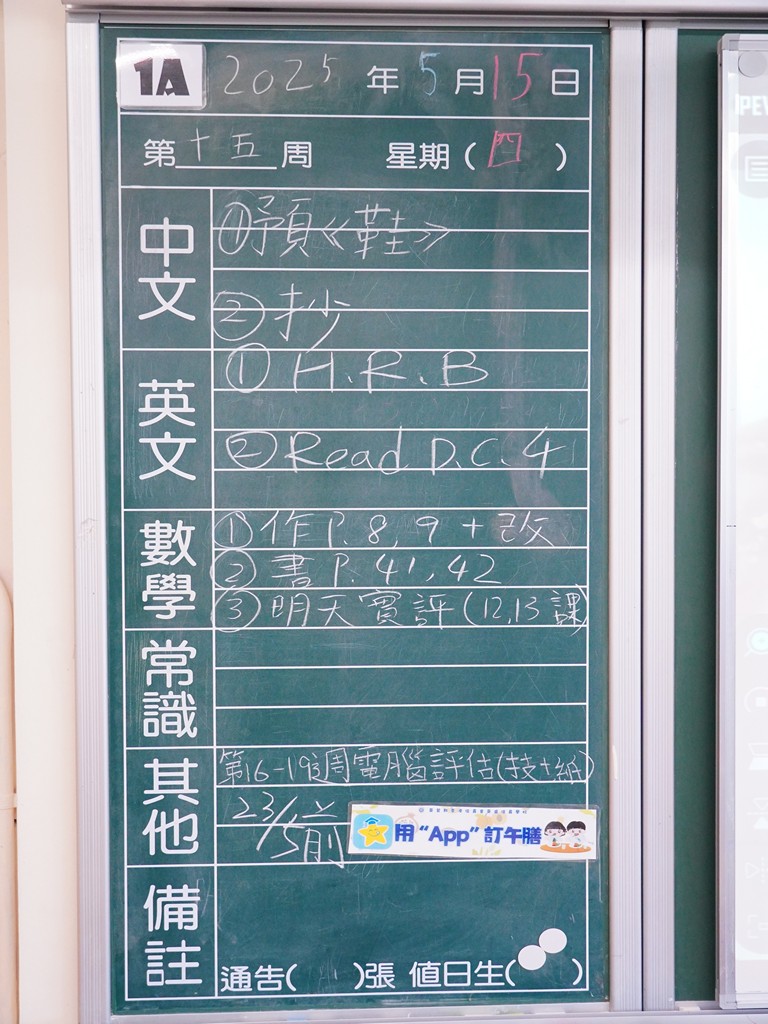 1A 2025 年 5 月 15 日
第 十五 周 星期 ( 四 )
中文
①預《鞋》
②抄
英文
① H.R.B
② Read D.C.4
數學
①作 P. 8, 9 + 改
②書 P. 41, 42
③明天實評 (12,13課)
常識
其他
第16-19周電腦評估(技+紙)
23/5前
用“App”訂午膳
備註
通告( )張 值日生( )